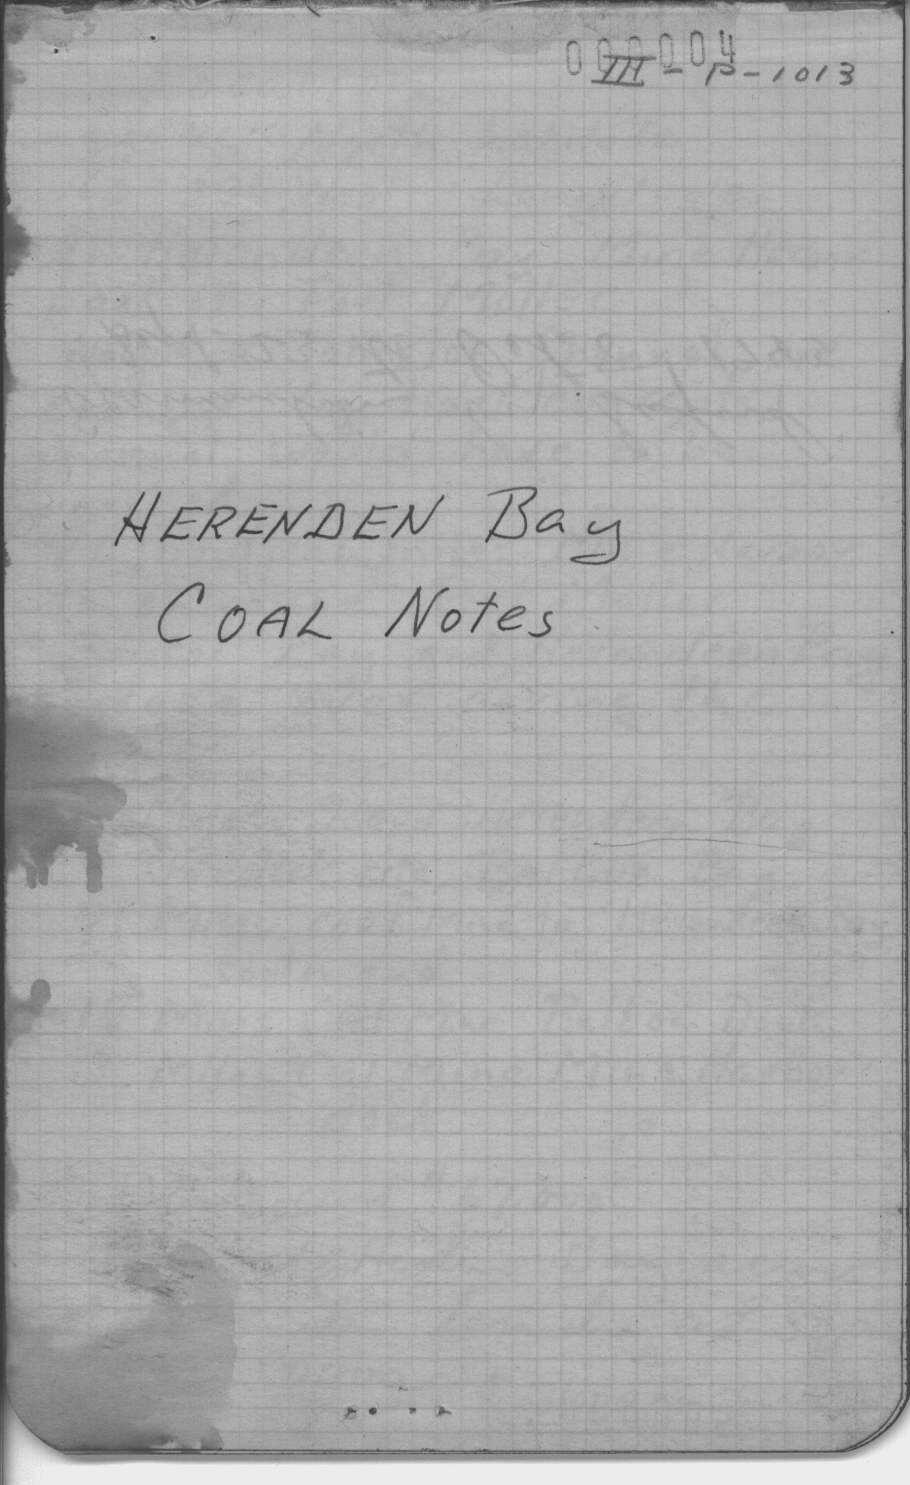 000004
III-P-1013
HERENDEN Bay
COAL Notes